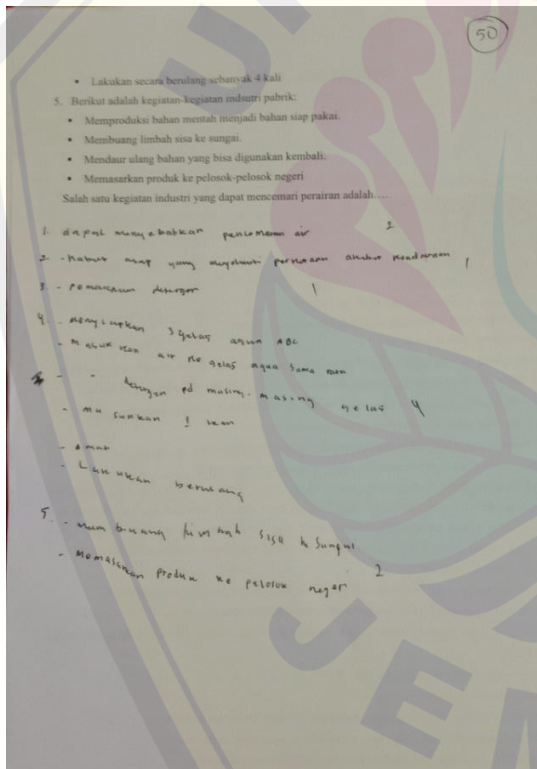 50
• Lakukan secara berulang sebanyak 4 kali
5. Berikut adalah kegiatan-kegiatan indsutri pabrik:
• Memproduksi bahan mentah menjadi bahan siap pakai.
• Membuang limbah sisa ke sungai.
• Mendaur ulang bahan yang bisa digunakan kembali.
• Memasarkan produk ke pelosok-pelosok negeri
Salah satu kegiatan industri yang dapat mencemari perairan adalah….
1. dapat menyebabkan air 2
2. - Kabut asap yang kendaraan 1
3. - Pemakaian 1
4. - Menyiapkan 3 gelas aqua ABC
- air ke gelas aqua sama
- masing-masing gelas 4
- 1 ikan
- Amati
- Lakukan berulang
5. - sisa sungai
- Memasarkan Produk ke pelosok negeri 2
JEM